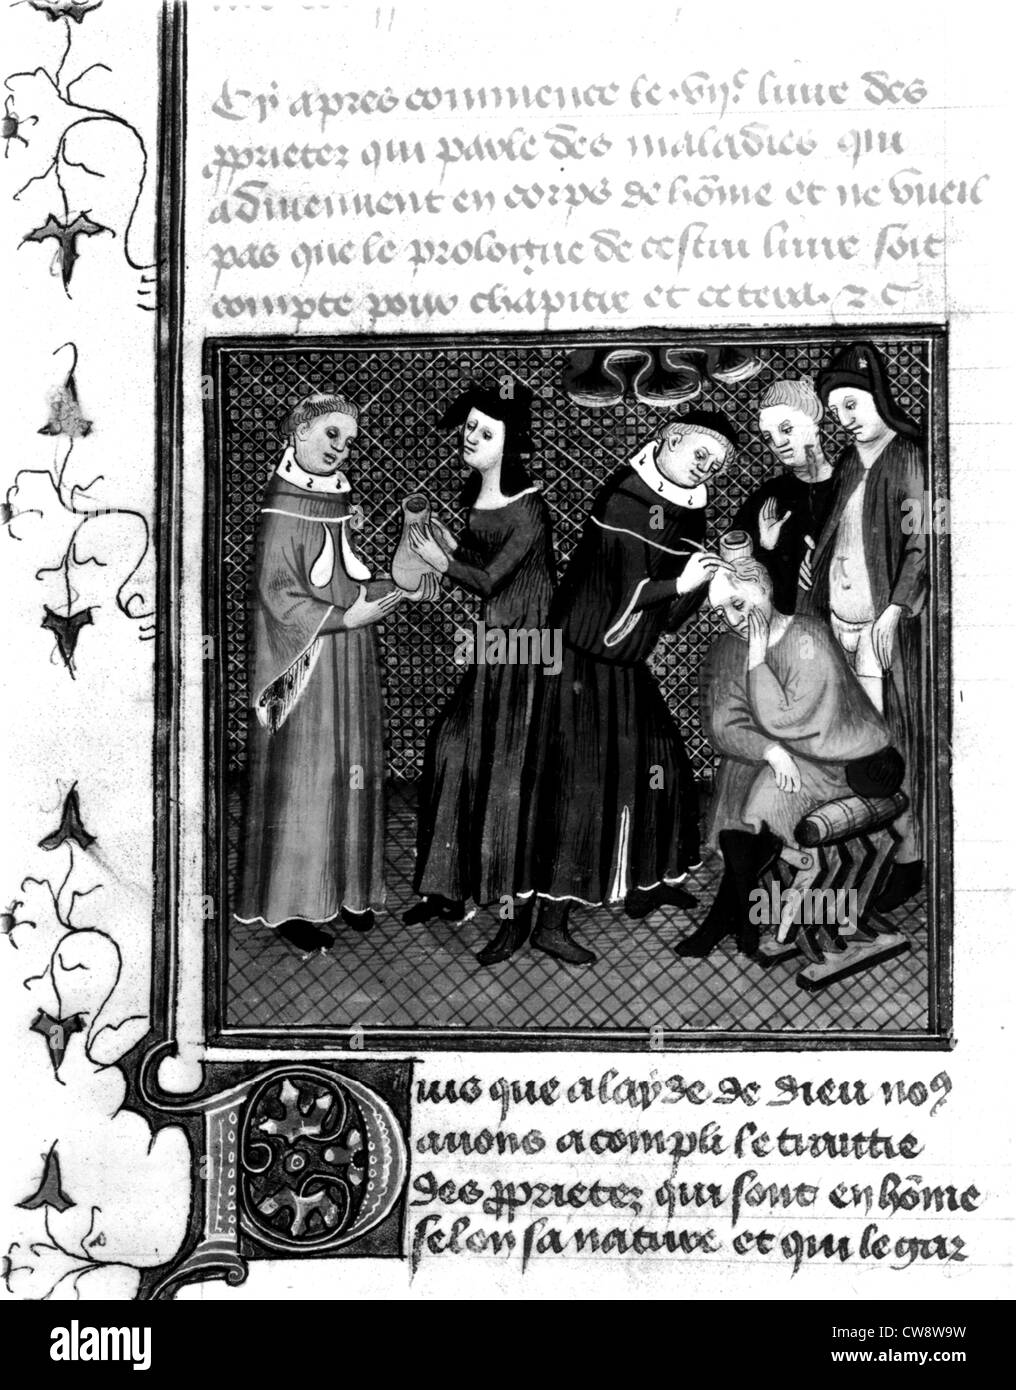 Cy apres commence le .vijᵉ. livre des
ꝓprietez qui parle des maladies qui
adviennent en corps de hōme et ne vueil
pas que le prologue de cestui livre soit
compte pour chapitre et cetera. ⁊ c
Puis que a layde de dieu noꝰ
avons acompli le traittie
des ꝓprietez qui sont en hōme
selon sa nature et qui le gar
alamy
Image ID: CW8W9W
www.alamy.com